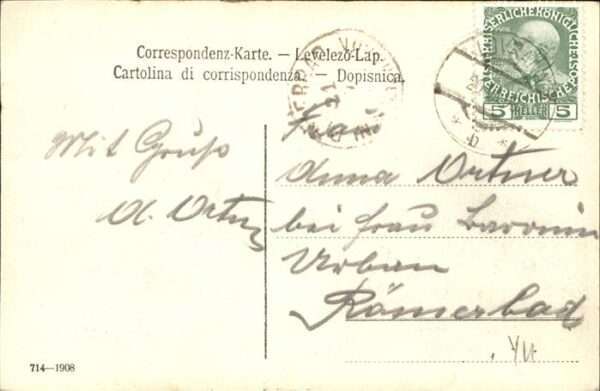 Correspondenz-Karte. — Levelező-Lap.
Cartolina di corrispondenza. — Dopisnica.
KAISERLICHE KÖNIGLICHE
ÖSTERREICHISCHE
5 HELLER 5
Mit Gruß
A. Ortner
Frau
Anna Ortner
bei Frau Baronin
Urban
Römerbad
714—1908